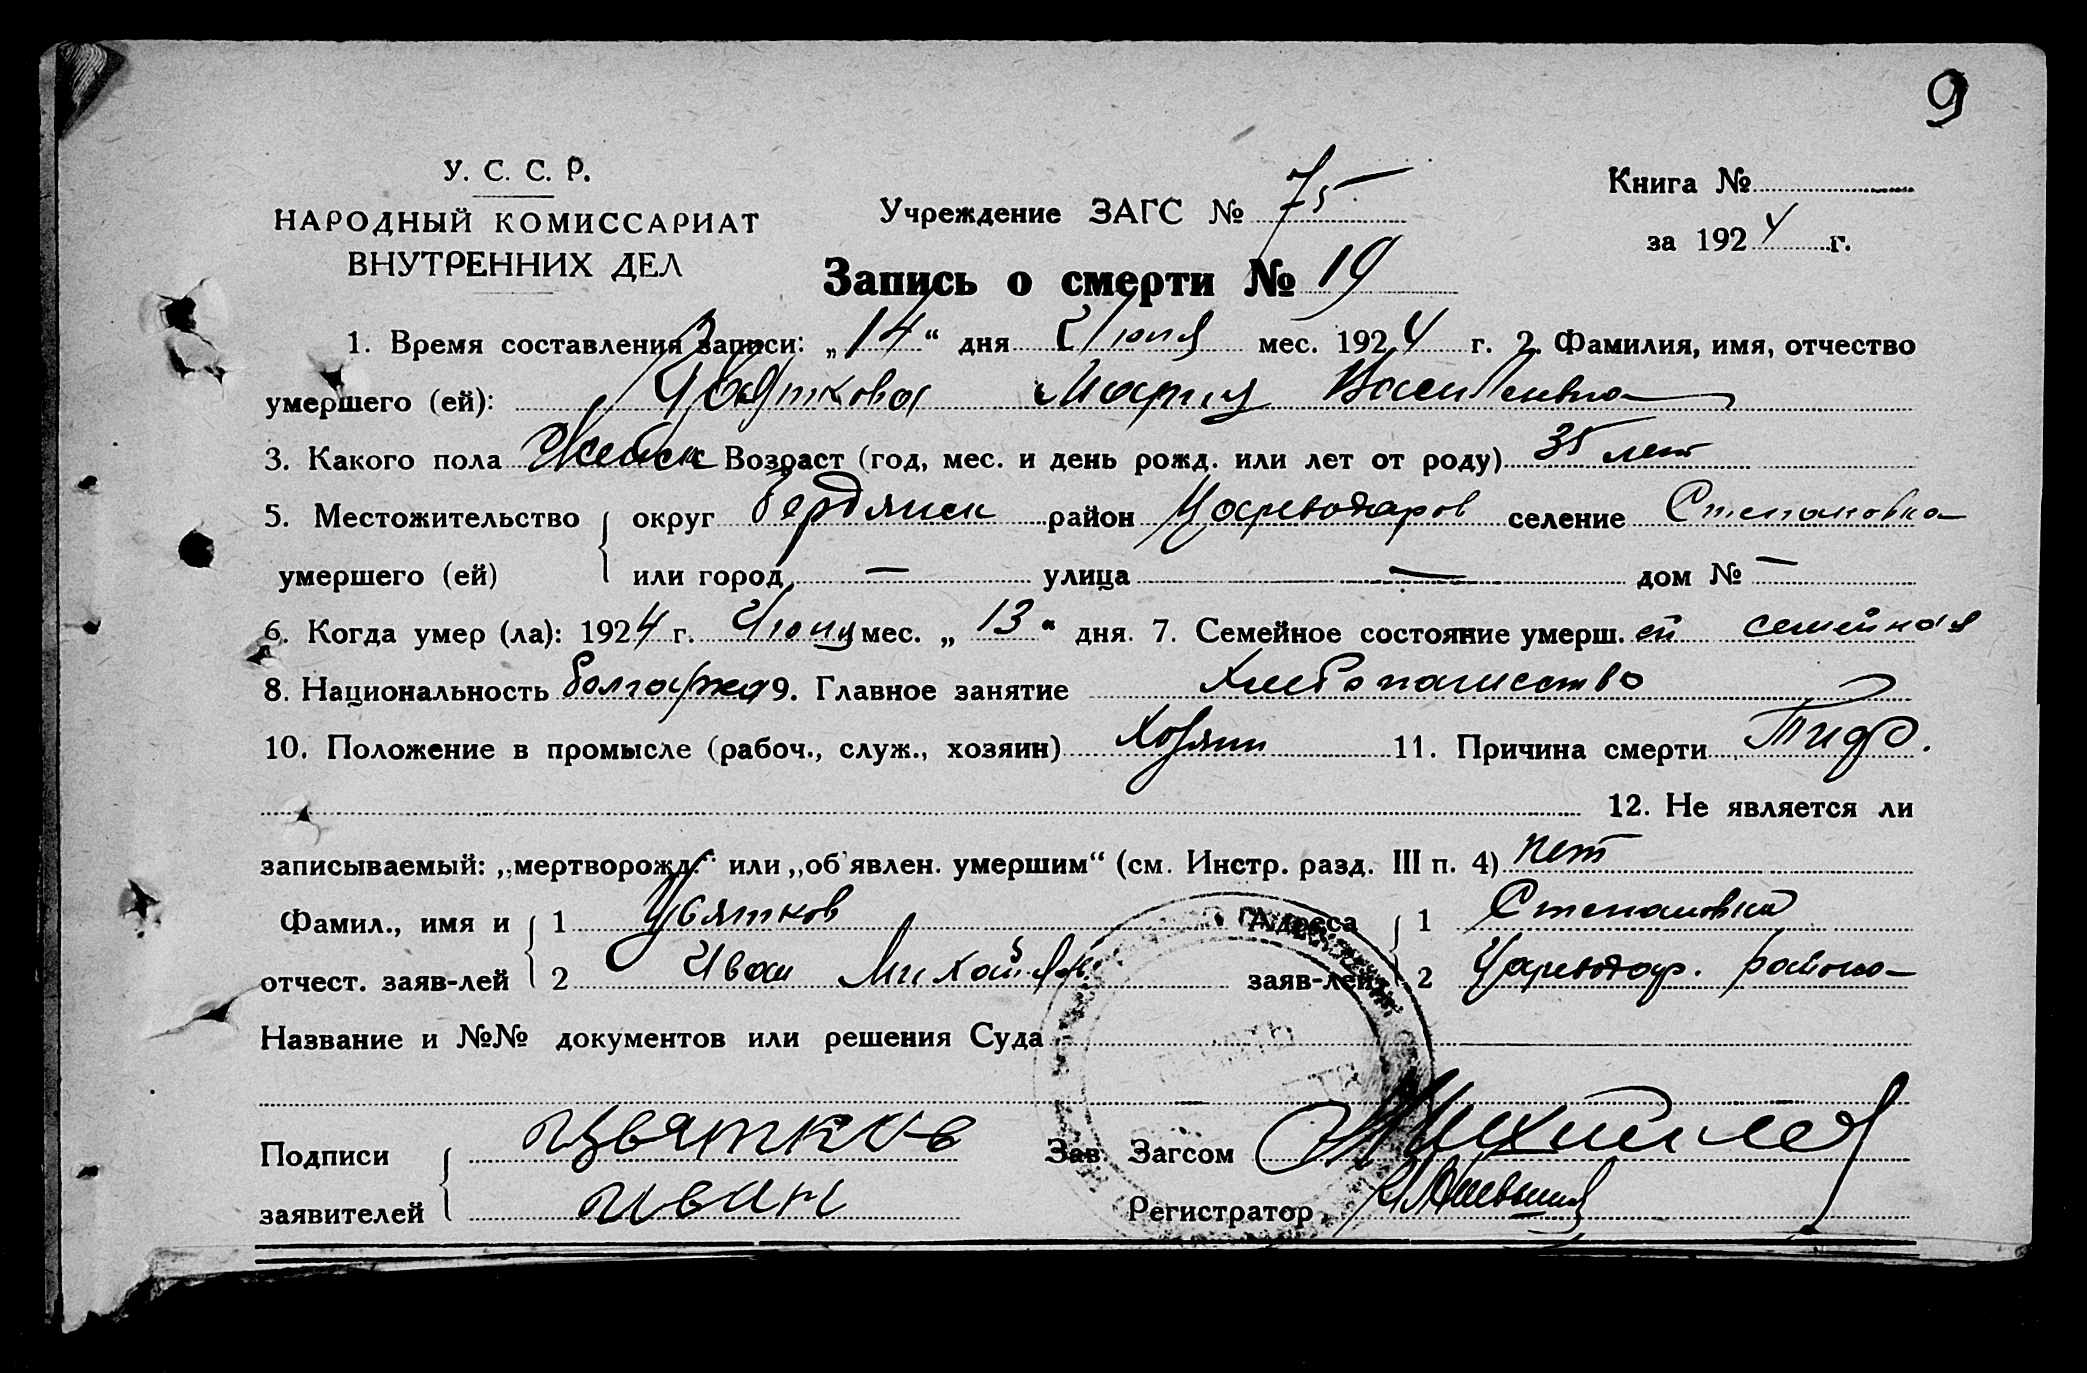 9
У. С. С. Р.
НАРОДНЫЙ КОМИССАРИАТ
ВНУТРЕННИХ ДЕЛ
Учреждение ЗАГС № 75
Книга №
за 1924 г.
Запись о смерти № 19
1. Время составления записи: „14“ дня Июня мес. 1924 г. 2. Фамилия, имя, отчество
умершего (ей): Цвяткова Мария Васильевна
3. Какого пола Женск Возраст (год, мес. и день рожд. или лет от роду) 35 лет
5. Местожительство округ Бердянск район Цареводаров селение Степановка
умершего (ей) или город — улица — дом № —
6. Когда умер (ла): 1924 г. Июня мес. „13“ дня. 7. Семейное состояние умерш. ей семейная
8. Национальность болгарка 9. Главное занятие Хлебопашество
10. Положение в промысле (рабоч., служ., хозяин) Хозяин 11. Причина смерти Тиф.
12. Не является ли
записываемый: „мертворожд.“ или „об'явлен. умершим“ (см. Инстр. разд. III п. 4) нет
Фамил., имя и 1 Цвятков Адреса 1 Степановка
отчест. заяв-лей 2 Иван Михайлов заяв-лей 2 Цареводар. района
Название и №№ документов или решения Суда
Подписи Цвятков Зав. Загсом
заявителей Иван Регистратор